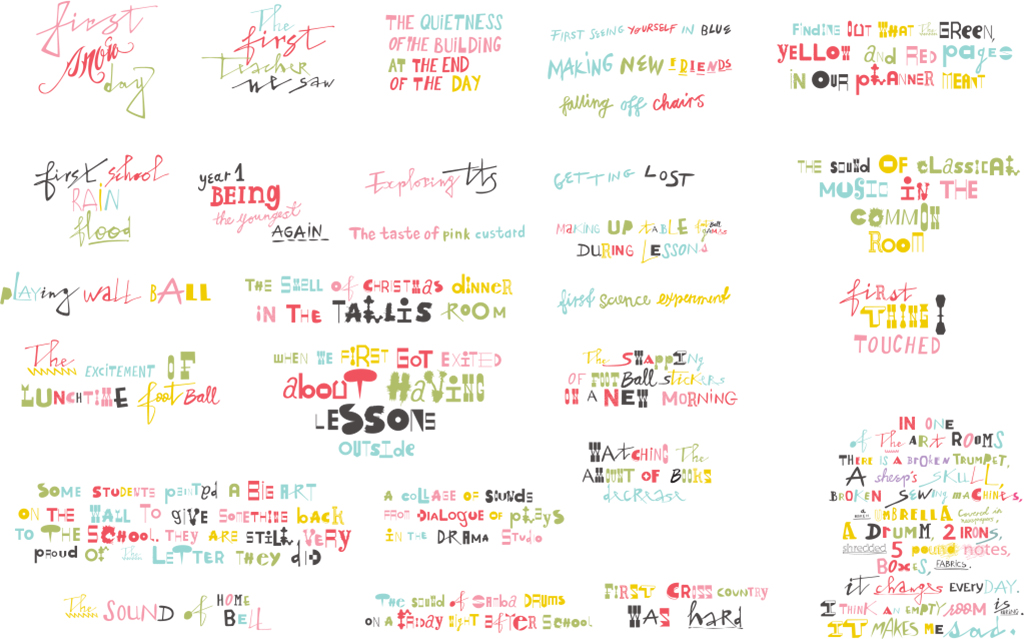 first
snow
day
The
first
teacher
we saw
THE QUIETNESS
OF THE BUILDING
AT THE END
OF THE DAY
FIRST SEEING YOURSELF IN BLUE
MAKING NEW FRIENDS
falling off chairs
FINDING OUT WHAT The GREEN,
YELLOW and RED pages
IN OUR PLANNER MEANT
first school
RAIN
flood
year 1
BEING
the youngest
AGAIN
Exploring tts
The taste of pink custard
GETTING LOST
MAKING UP TABLE football games
DURING LESSONS
first science experiment
THE SOUND OF CLASSICAL
MUSIC IN THE
COMMON
ROOM
PLAYing wall BALL
THE SMELL of CHRISTMAS dinner
IN THE TALLIS ROOM
first
THING I
TOUCHED
The
EXCITEMENT OF
LUNCHTIME footBall
WHEN WE FIRST GOT EXITED
about HAVING
LESSONS
OUTSIDE
The SWAPPING
OF FOOTBall stickers
ON A NEW MORNING
WATCHING The
AMOUNT OF BOOKS
decrease
SOME STUDENTS painted A BIG ART
ON THE WALL TO giVE SOMETHING back
TO THE SCHOOL. THEY ARE STILL VERY
proud OF The LETTER THEY did
A COLLAGE OF SOUNDS
FROM DIALOGUE OF PLAYS
IN THE DRAMA STUDIO
IN ONE
of The ART ROOMS
THERE IS A BROKEN TRUMPET,
A sheep's SKULL,
BROKEN SEWING MACHINES,
A UMBRELLA Covered in newspapers,
A DRUMM, 2 IRONS,
shredded 5 pound notes,
BOXES, FABRICS.
it changes EVERYDAY.
I THINK AN EMPTY room is boring.
IT MAKES ME sad.
The SOUND of HOME
BELL
The sound of samba DRUMS
ON A FRIDAY NIGHT AFTER SCHOOL
FIRST CROSS COUNTRY
WAS hard